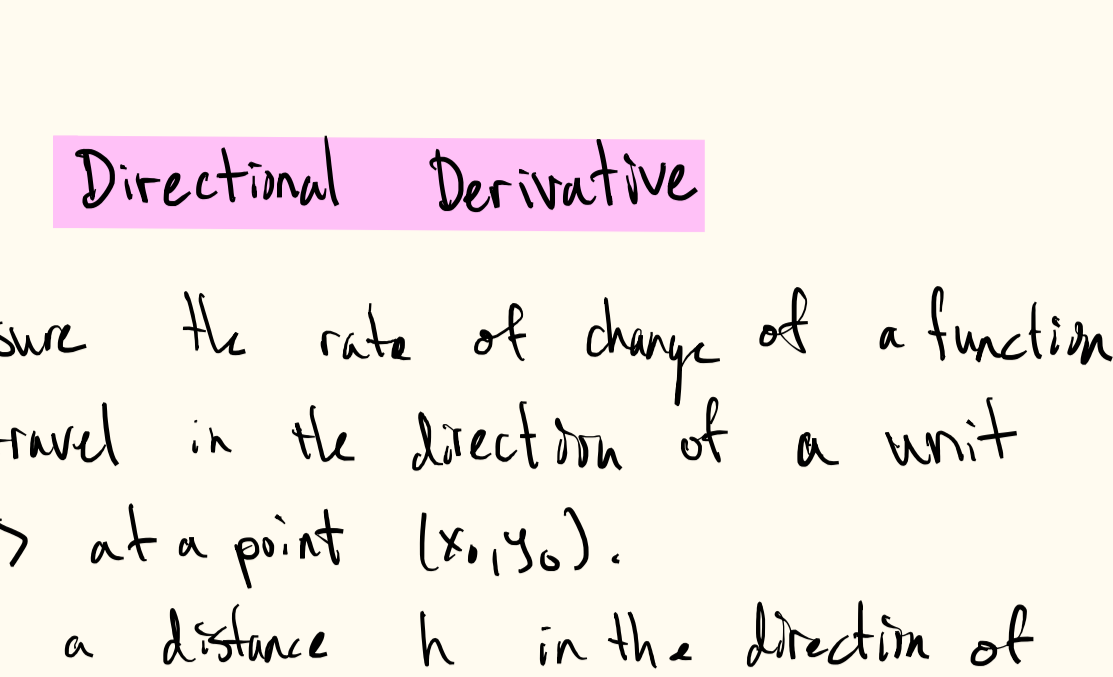 Directional Derivative
sure the rate of change of a function
travel in the direction of a unit
> at a point (x₀,y₀).
a distance h in the direction of